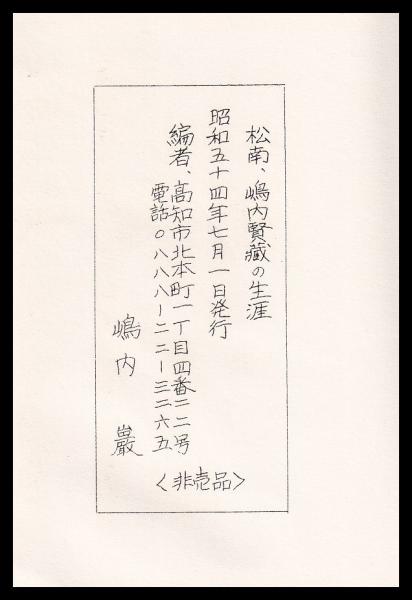 松南、嶋内賢藏の生涯
昭和五十四年七月一日発行
編者、高知市北本町一丁目四番二二号
電話〇八八八ー二二ー三二六五
嶋内 巖
〈非売品〉